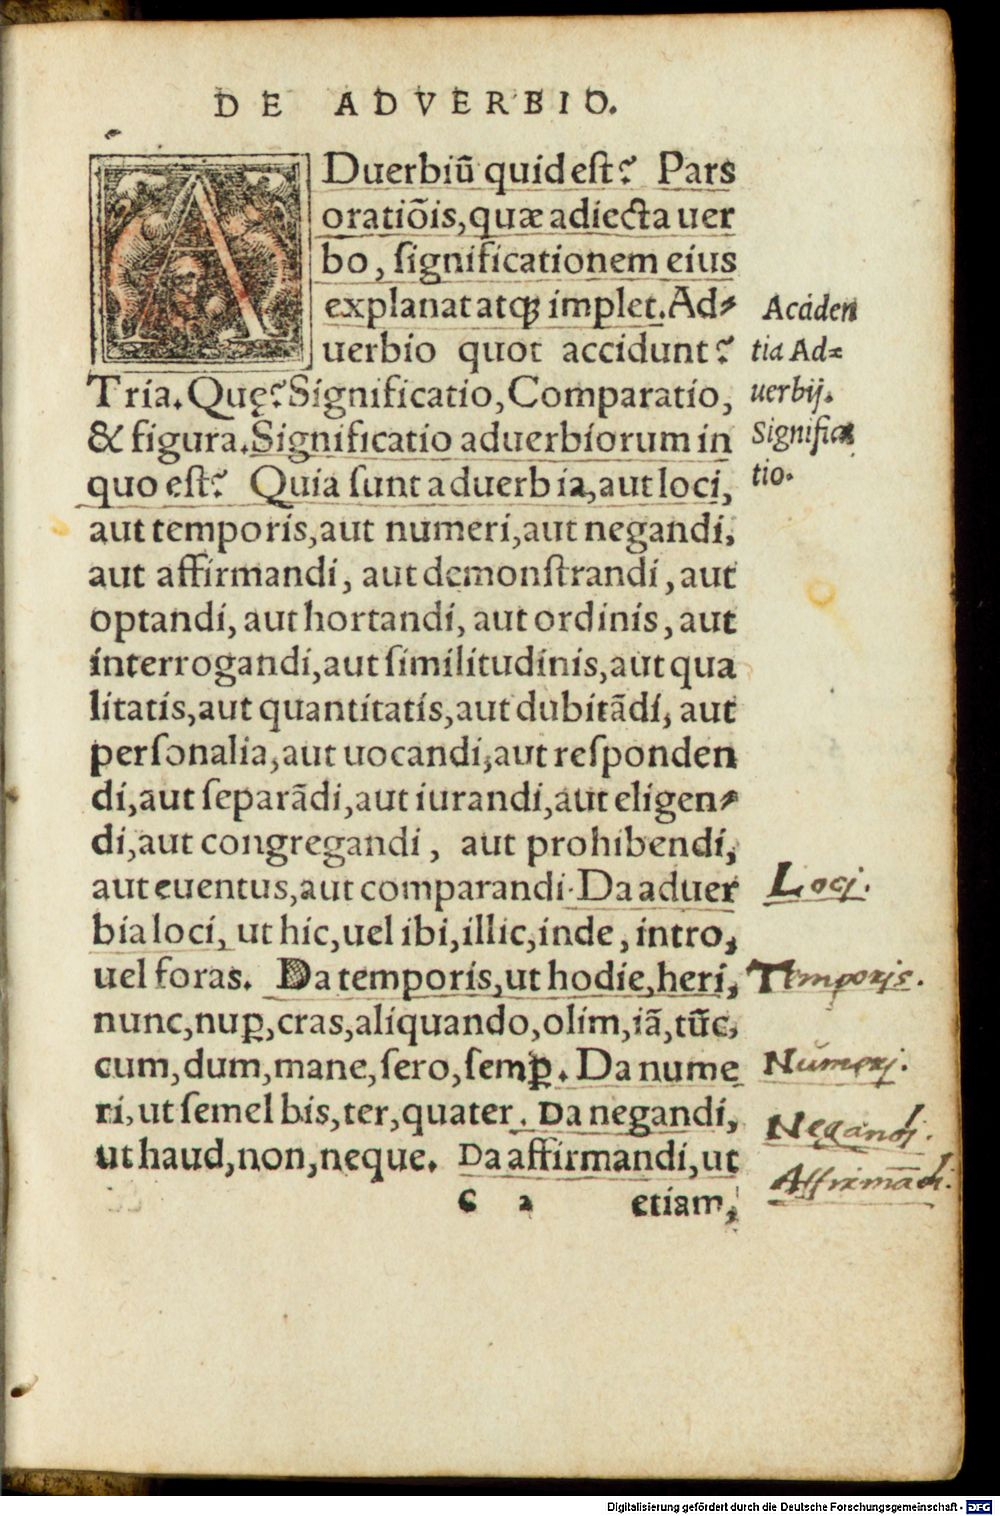 DE ADVERBIO.
ADuerbiū quid est? Pars
oratiōis, quæ adiecta uer
bo, significationem eius
explanat atqꝫ implet. Ad-
uerbio quot accidunt?
Tria. Quę? Significatio, Comparatio,
& figura. Significatio aduerbiorum in
quo est? Quia sunt aduerbia, aut loci,
aut temporis, aut numeri, aut negandi,
aut affirmandi, aut demonstrandi, aut
optandi, aut hortandi, aut ordinis, aut
interrogandi, aut similitudinis, aut qua
litatis, aut quantitatis, aut dubitādi, aut
personalia, aut uocandi, aut responden
di, aut separādi, aut iurandi, aut eligen-
di, aut congregandi, aut prohibendi,
aut euentus, aut comparandi. Da aduer
bia loci, ut hic, uel ibi, illic, inde, intro,
uel foras. Da temporis, ut hodie, heri,
nunc, nuꝑ, cras, aliquando, olim, iā, tūc,
cum, dum, mane, sero, semꝑ. Da nume
ri, ut semel bis, ter, quater. Da negandi,
ut haud, non, neque. Da affirmandi, ut
C 2 etiam,
Accíden
tia Ad-
uerbij.
Significa
tio.
Locj.
Temporis.
Nŭmerj.
Negandj.
Affirmādi.
Digitalisierung gefördert durch die Deutsche Forschungsgemeinschaft - DFG